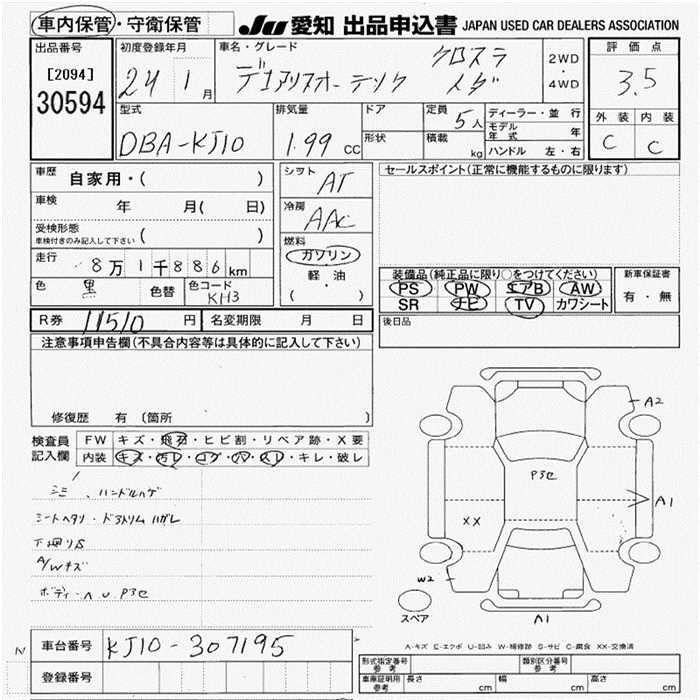 車内保管・守衛保管
JU 愛知 出品申込書 JAPAN USED CAR DEALERS ASSOCIATION
出品番号
[2094]
30594
初度登録年月
24 1月
車名・グレード
デュアリスオーテック クロスライダー
2WD・4WD
評価点
3.5
外装 内装
C C
型式
DBA-KJ10
排気量
1.99 CC
ドア
形状
定員
5人
積載
kg
ディーラー・並行
モデル年式 年
ハンドル 左・右
車歴
自家用・( )
車検
年 月( 日)
受検形態
車検付きのみ記入して下さい ( )
走行
8万1千886km
色
黒
色替
色コード
KH3
シフト
AT
冷房
AAC
燃料
ガソリン
軽・油
( ・ )
セールスポイント(正常に機能するものに限ります)
装備品(純正品に限り○をつけてください)
PS PW エアB AW
SR ナビ TV カワシート
新車保証書
有・無
後日品
R券 11510円
名変期限 月 日
注意事項申告欄(不具合内容等は具体的に記入して下さい)
修復歴 有 〔箇所 〕
検査員記入欄
FW キズ・飛石・ヒビ割・リペア跡・X要
内装 キズ・汚レ・コゲ・穴・スレ・キレ・破レ
シミ、ハンドルハゲ
シートヘタリ・ドアトリムハガレ
下廻りS
A/Wキズ
ボディ・A U P3セ
A2
P3セ
A1
XX
W2
A1
スペア
A-キズ E-エクボ U-凹み W-補修跡 S-サビ C-腐食 XX-交換済
車台番号
KJ10-307195
登録番号
形式指定番号
参考
類別区分番号
参考
車庫証明用
参考
長さ cm 幅 cm 高さ cm